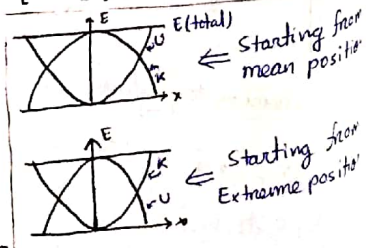 E E(total)
U
K
x
⇐ Starting from
mean positio
E
K
U
⇐ Starting from
Extreme positio